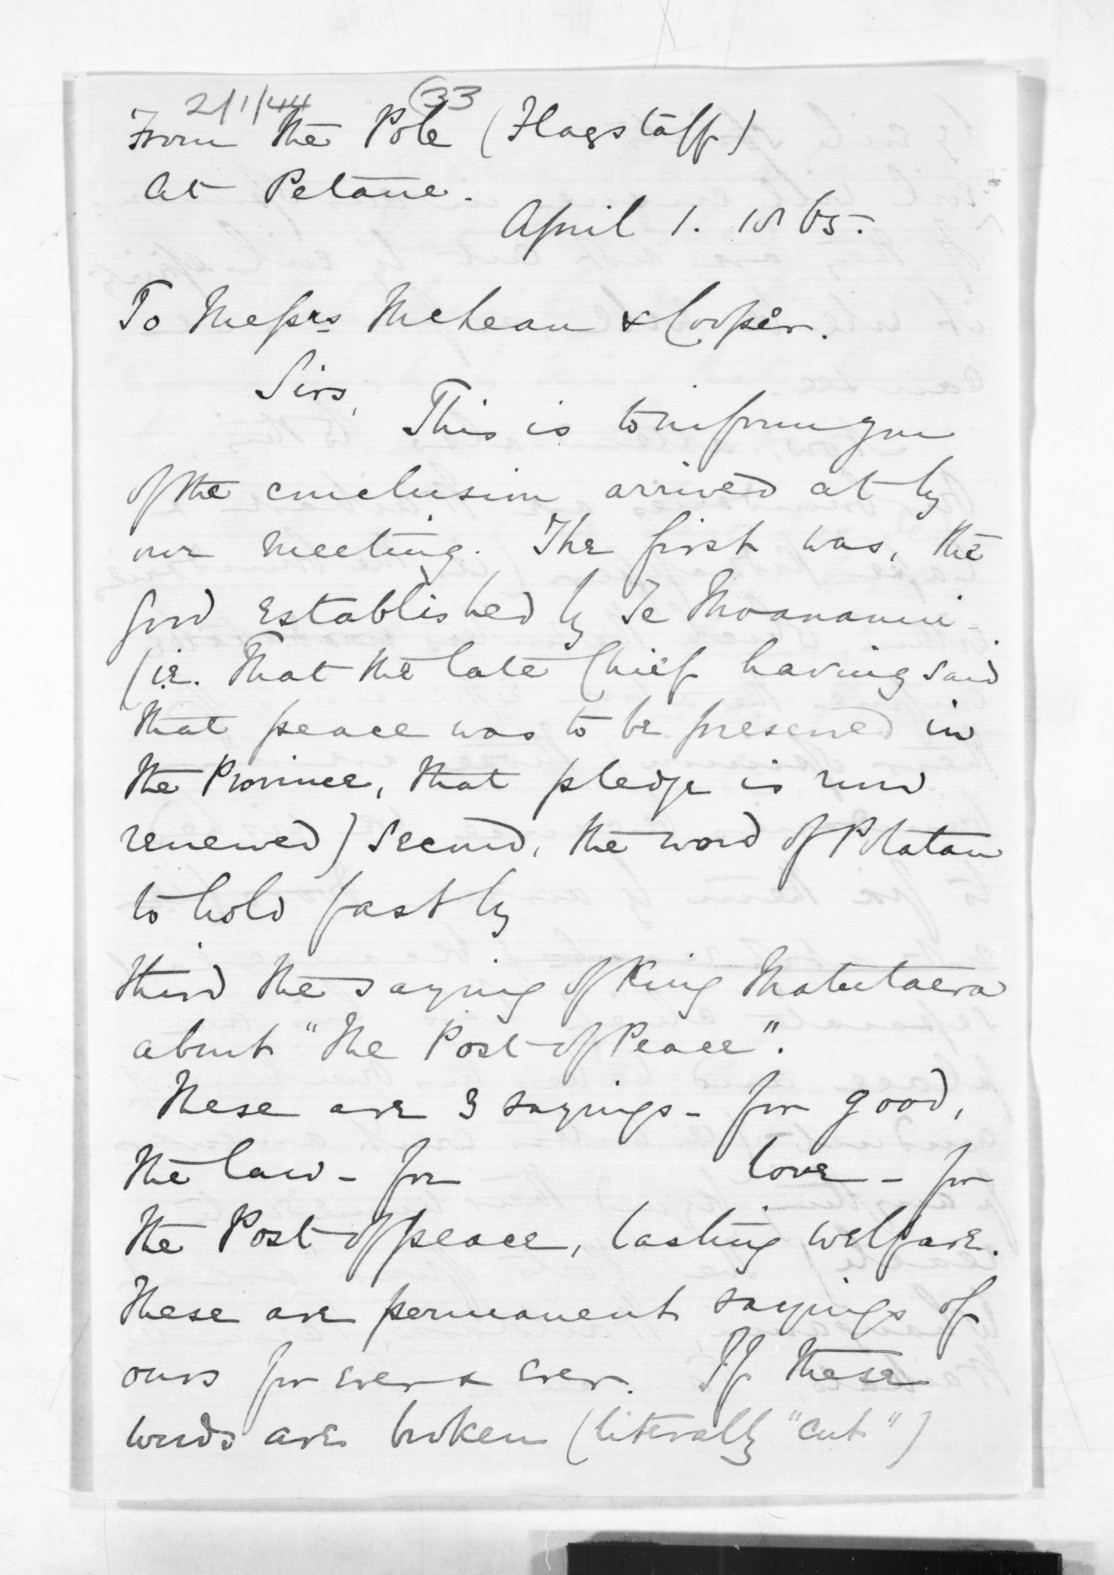 2/1/44 (33
From the Pole (Flagstaff)
At Petane.
April 1. 1865.
To Messrs McLean & Cooper.
Sirs,
This is to inform you
of the conclusion arrived at by
our meeting. The first was, the
good established by Te Moananui -
(i.e. That the late Chief having said
that peace was to be preserved in
the Province, that pledge is now
renewed) Second, the word of Potatau
to hold fast by
third the saying of King Matutaera
about "The Post of Peace".
These are 3 sayings - for good,
the law - for love - for
the Post of peace, lasting welfare.
These are permanent sayings of
ours for ever & ever. If these
words are broken (literally "cut")